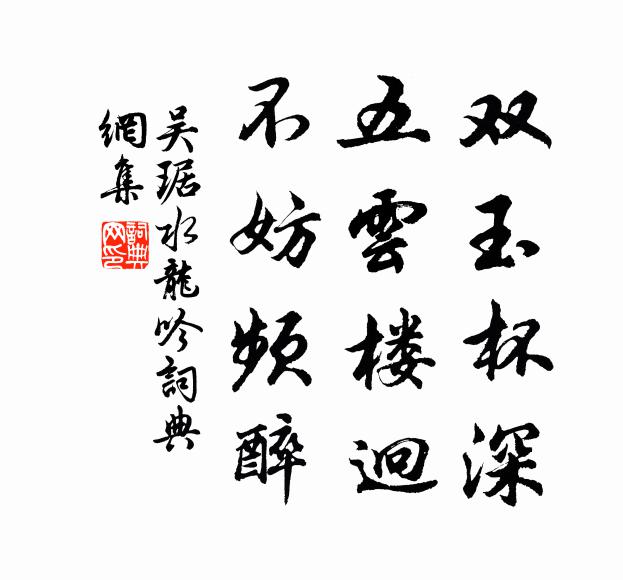 双玉杯深
五雲楼迥
不妨频醉
吴琚水龍吟詞典
網集
詞典網印